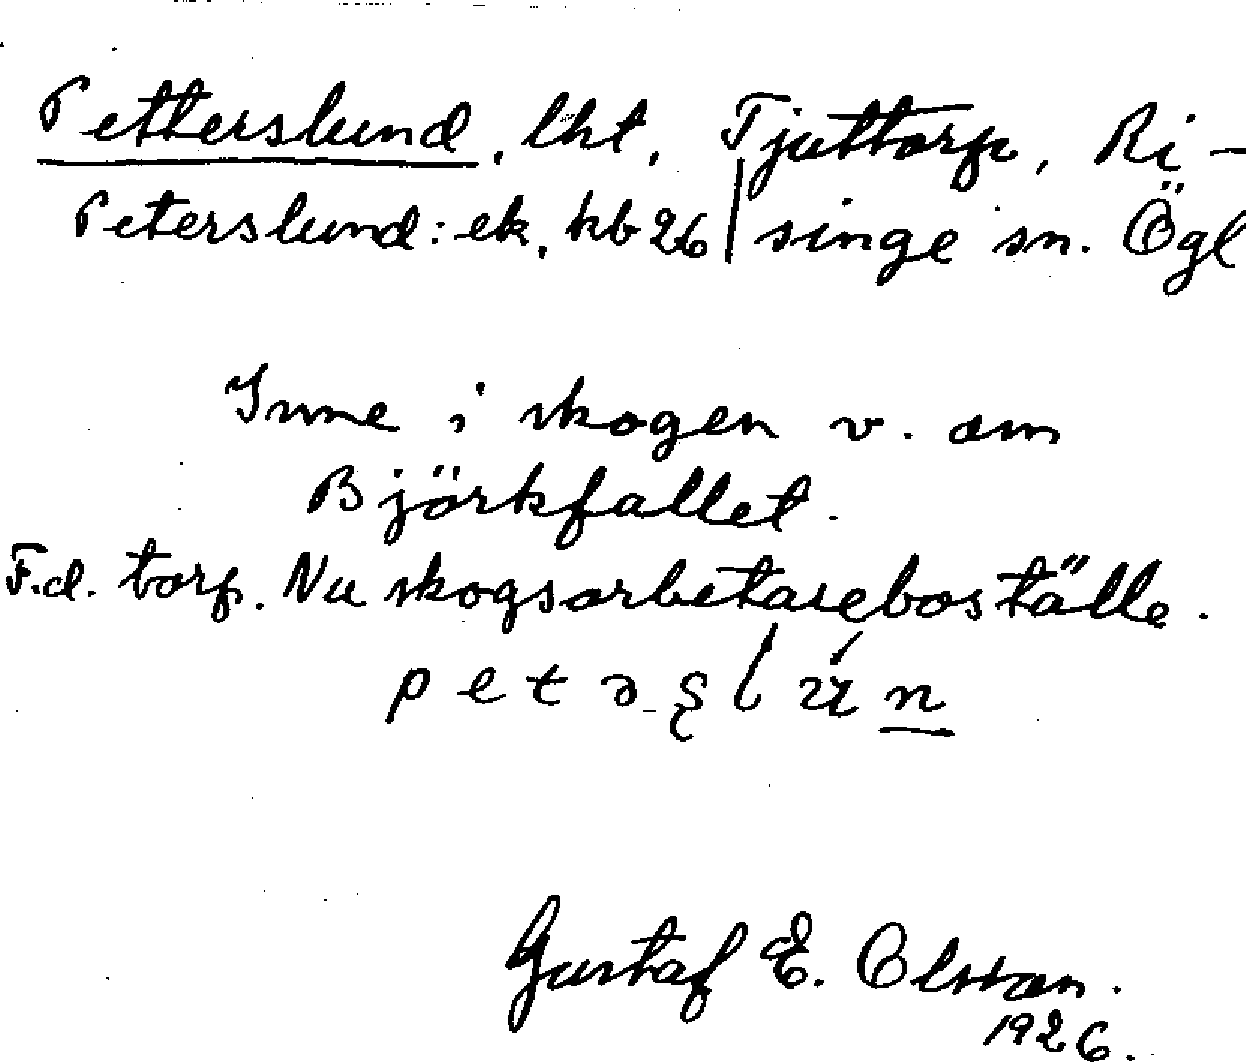 Petterslund, lht, Tjuttorp, Ri-
Peterslund: ek, kb 26 | singe sn. Ögl
Inne i skogen v. om
Björkfallet.
F.d. torp. Nu skogsarbetareboställe.
Gustaf E. Olsson.
1926.